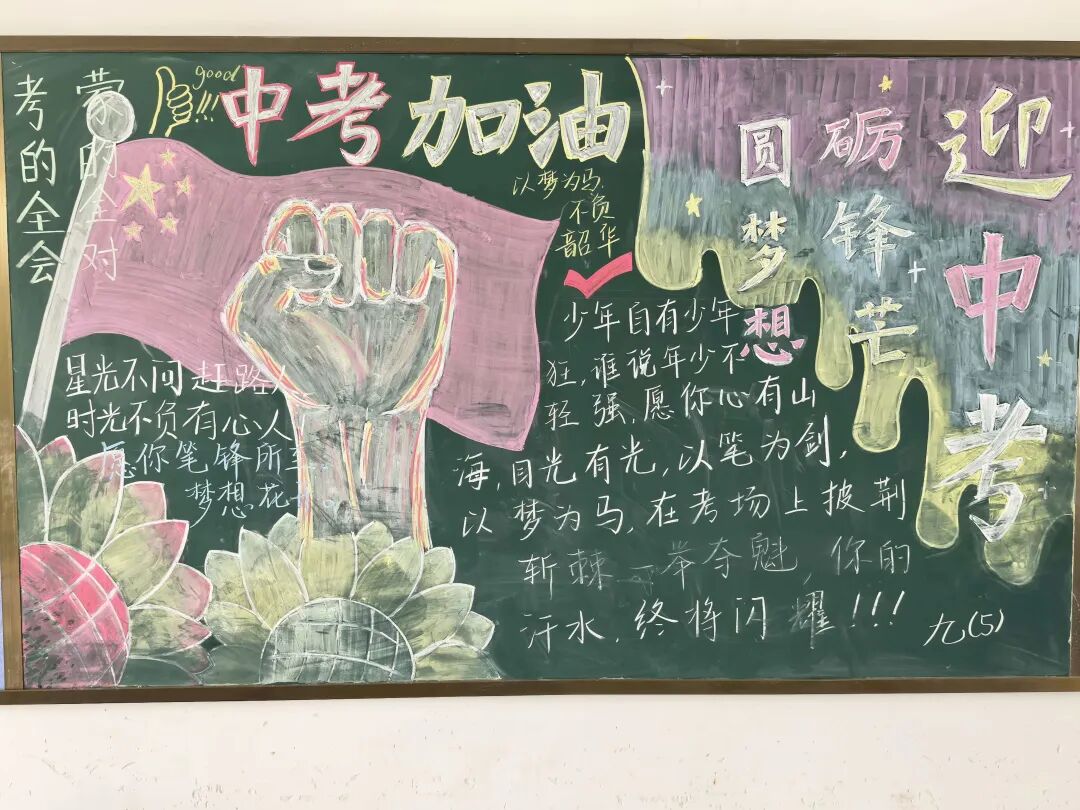 考的全会
蒙的全对
good
!!!
中考加油
以梦为马
不负
韶华
圆梦想
砺锋芒
迎中考
星光不问赶路人
时光不负有心人
愿你笔锋所至
梦想花
少年自有少年
狂，谁说年少不
轻强，愿你心有山
海，目光有光，以笔为剑，
以梦为马，在考场上披荆
斩棘一举夺魁，你的
汗水，终将闪耀！！！
九(5)